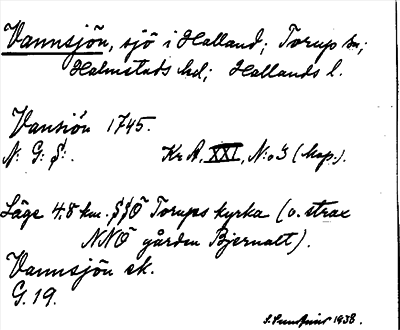 Vannsjön, sjö i Halland; Torup sn;
Halmstads hd; Hallands l.
Vansiön 1745.
N: G: §:. Kr A, XXI, N:o 3 (kap.).
Läge 4.8 km. SSÖ Torups kyrka (o. strax
NNÖ gården Bjernalt).
Vannsjön ek.
G. 19.
1938.